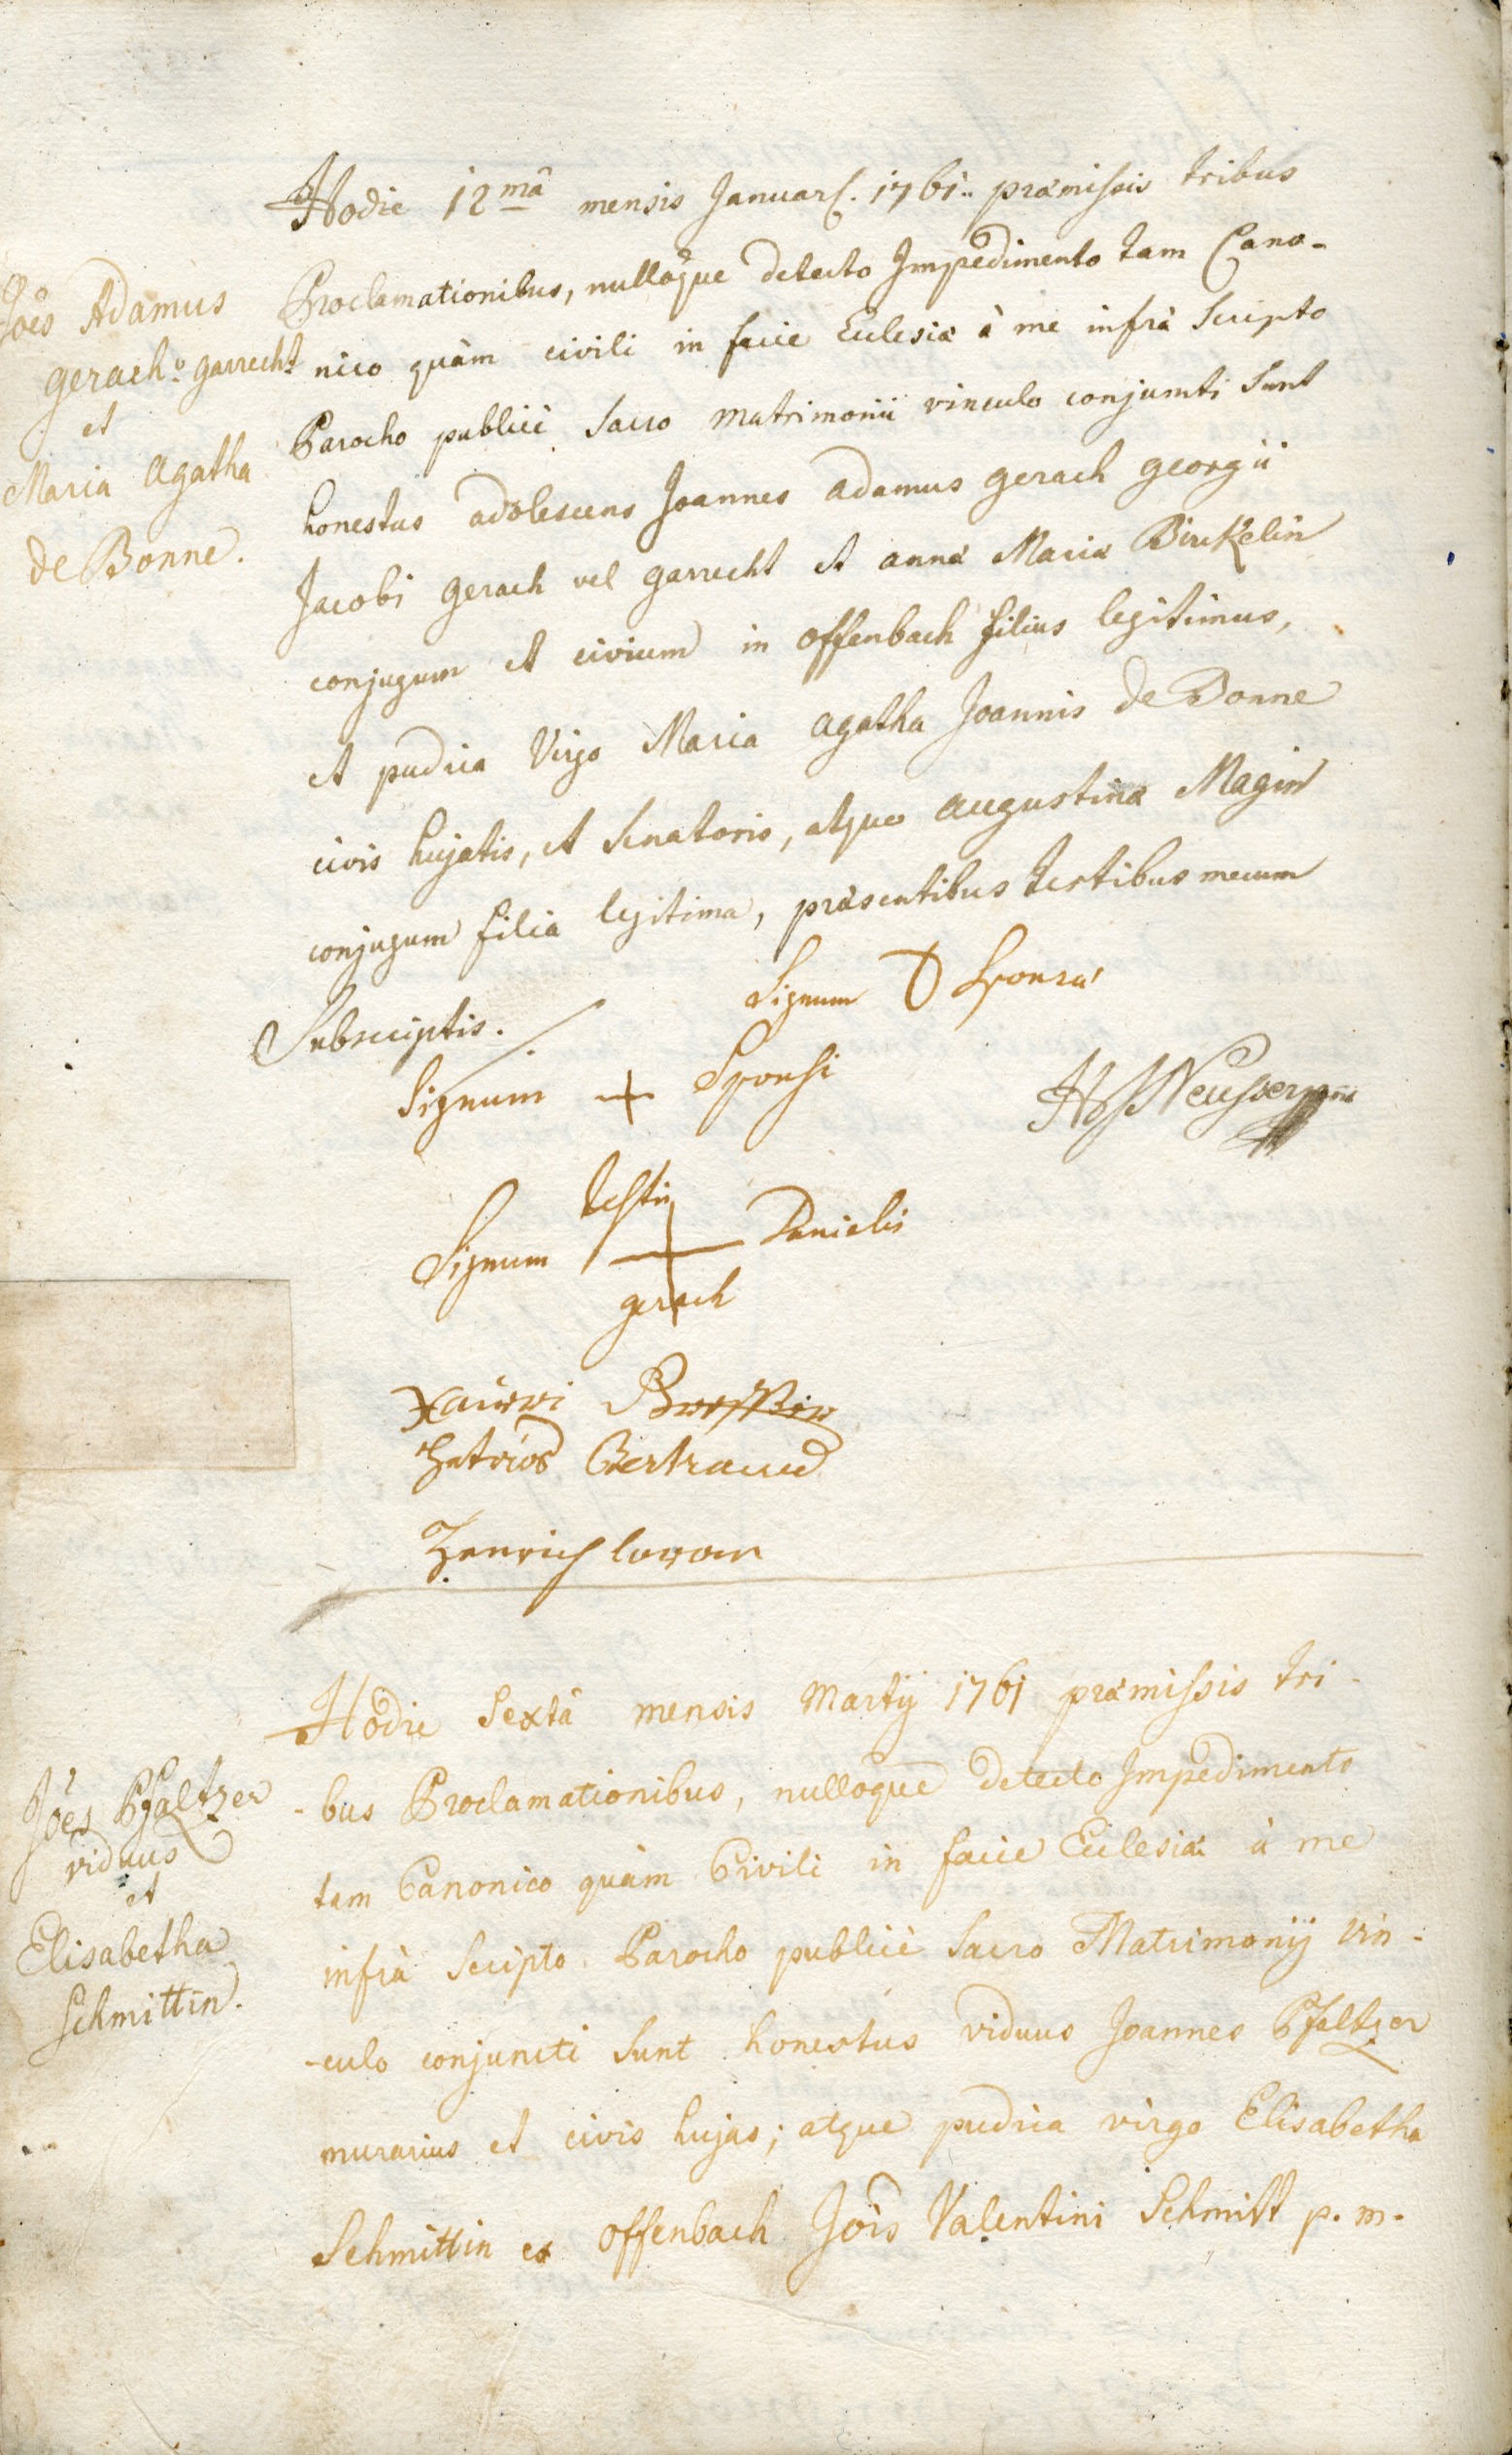 Hodie 12mâ mensis Januar. 1761. præmissis tribus
Joês Adamus
gerach v. garrecht
et
Maria agatha
de Bonne.
Proclamationibus, nulloque detecto Impedimento tam Cano-
nico quàm civili in facie Ecclesiæ à me infrà Scripto
Parocho publicè Sacro matrimonii vinculo conjuncti Sunt
honestus adolescens Joannes adamus gerach georgii
Jacobi gerach vel garrecht et annæ Mariæ Binckelin
conjugum et civium in offenbach filius legitimus,
et pudica Virgo Maria agatha Joannis de Bonne
civis hujatis, et Senatoris, atque augustinæ Magin
conjugum filia legitima, præsentibus testibus mecum
Subscriptis.
Signum Sponsæ
Signum + Sponsi
testis
Signum + Danielis
gerach
Bertrand
Henrich
Hodie Sextâ mensis Martij 1761 præmissis tri-
Joês Pfaltzer
viduus
et
Elisabetha
Schmittin.
-bus Proclamationibus, nulloque detecto Impedimento
tam Canonico quàm Civili in facie Ecclesiæ à me
infrà Scripto Parocho publicè Sacro Matrimonij vin-
-culo conjuncti Sunt honestus viduus Joannes Pfaltzer
murarius et civis hujas; atque pudica virgo Elisabetha
Schmittin ex offenbach Joîs Valentini Schmitt p. m.